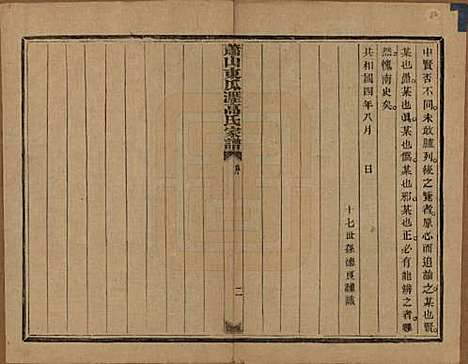 中賢否不同未敢臚列後之覽者原心而追論之某也賢
某也愚某也眞某也僞某也邪某也正必有能辨之者尋
然愧南史矣
共和國四年八月　日
十七世孫德
謹識
蕭山東瓜瀝高氏家譜
序
二